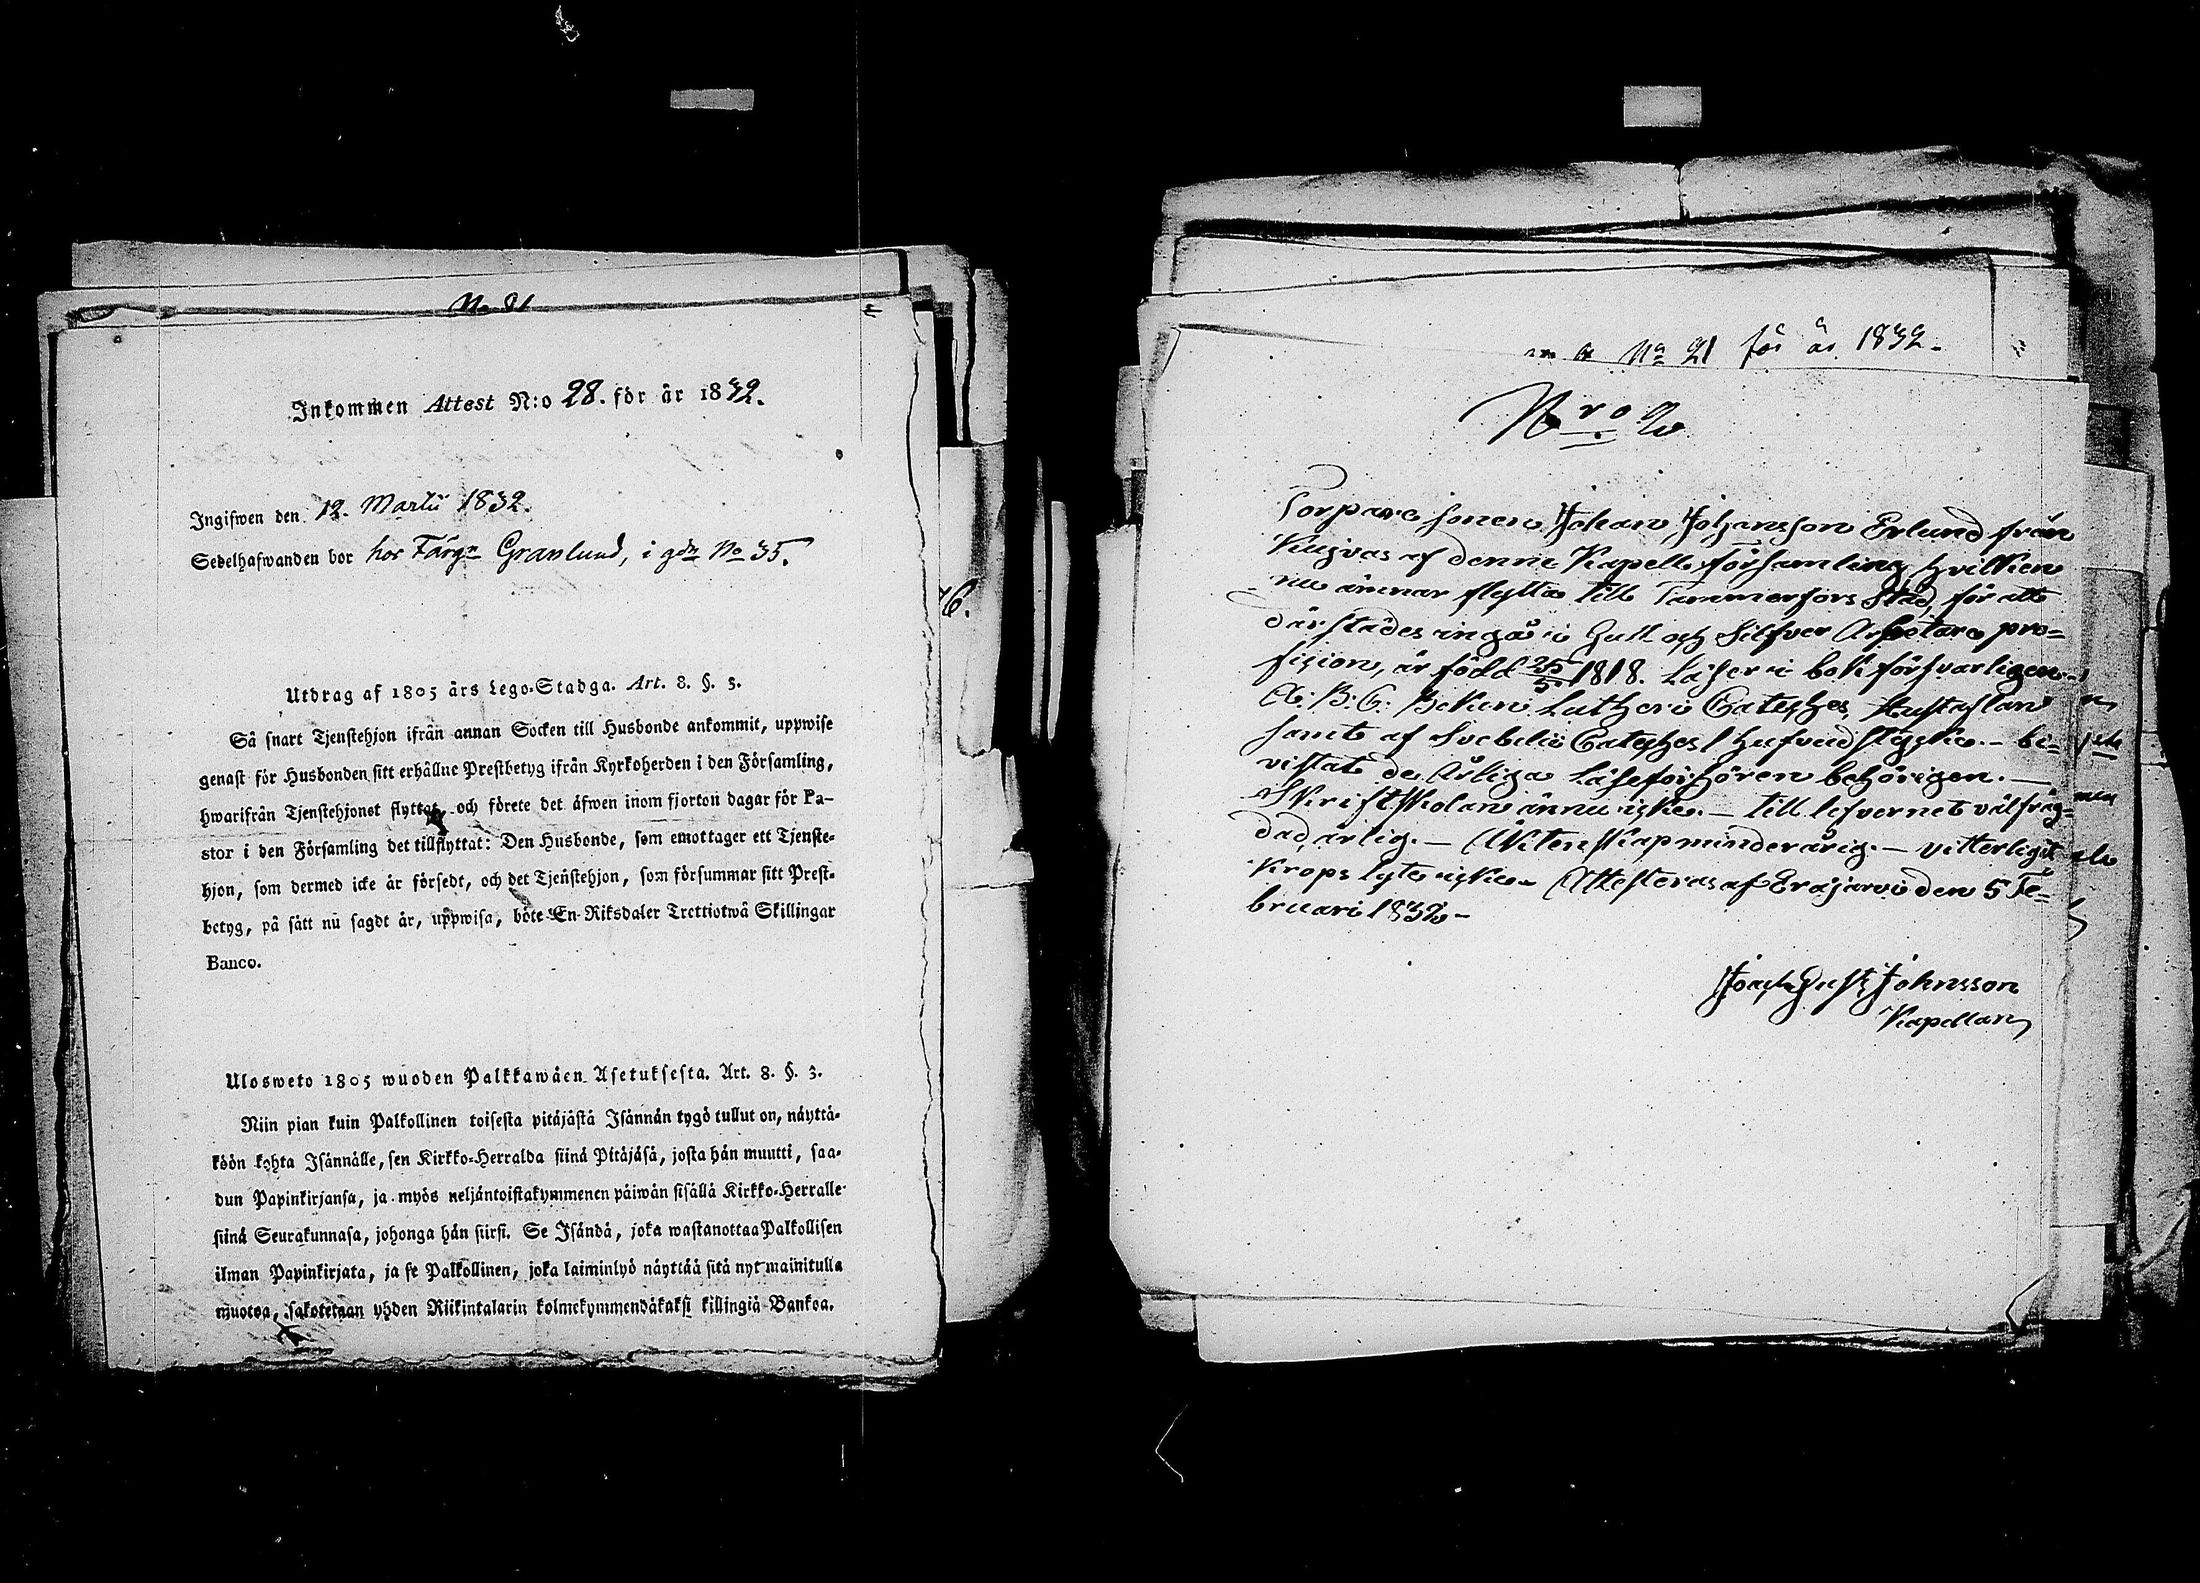 No 21
Inkommen Attest N:o 28. för år 1832.
Ingifwen den 12. Martii 1832.
Sedelhafwanden bor hos Färgn Granlund, i gdn No 35.
Utdrag af 1805 års Lego-Stadga. Art. 8. §. 3.
Så snart Tjenstehjon ifrån annan Socken till Husbonde ankommit, uppwise
genast för Husbonden sitt erhållne Prestbetyg ifrån Kyrkoherden i den Församling,
hwarifrån Tjenstehjonet flyttat, och förete det äfwen inom fjorton dagar för Pa-
stor i den Församling det tillflyttat: Den Husbonde, som emottager ett Tjenste-
hjon, som dermed icke är försedt, och det Tjenstehjon, som försummar sitt Prest-
betyg, på sätt nu sagdt är, uppwisa, böte En Riksdaler Trettiotwå Skillingar
Banco.
Ulosweto 1805 wuoden Palkkawäen Asetuksesta. Art. 8. §. 3.
Niin pian kuin Palkollinen toisesta pitäjästä Isännän tygö tullut on, näyttä-
köön kohta Isännälle, sen Kirkko-Herralda siinä Pitäjäsä, josta hän muutti, saa-
dun Papinkirjansa, ja myös neljäntoistakymmenen päiwän sisällä Kirkko-Herralle
siinä Seurakunnasa, johonga hän siirsi. Se Isändä, joka wastanottaa Palkollisen
ilman Papinkirjata, ja se Palkollinen, joka laiminlyö näyttää sitä nyt mainitulla
muotoa, sakotetaan yhden Riikintalarin kolmekymmendäkaksi killingiä Bankoa.
6.
No 21 för år 1832.
Nro 2
Torpare sonen Johan Johansson Erlund från
Kujvas af denne Kapell församling, hvilken
nu ämnar flytta till Tammerfors Stad, för att
därstädes ingå i Gull och Silfver Arbetare pro=
fision, är född 25/5 1818. Läser i bok försvarligen
A. B. C. Boken Lutheri Cateches, Hustaflan
samt af Svebelii Cateches hufvudstycke. – bi=
vistat de Årliga Läseförhören behörigen. –
Skriftskolan ännu icke. – till lefvernet välfräg=
dad ärlig. – Äktenskap minderårig. – vitterligit
Kropslyte icke. Attesteras af Eräjärvi den 5 Fe=
bruari 1832 –
Joach Gust Johnsson
Kapellan